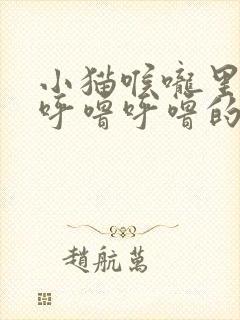 小猫喉嚨里
呼噜呼噜的
趙航萬